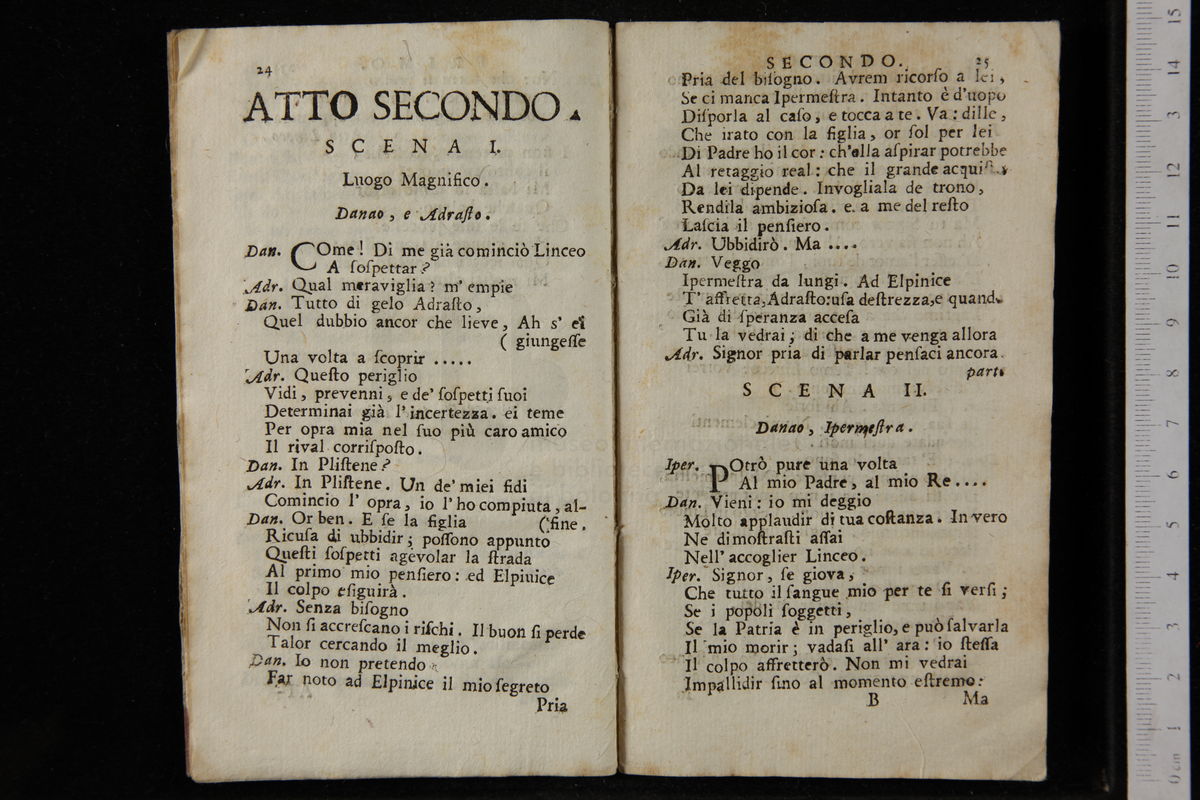 24
ATTO SECONDO.
SCENA I.
Luogo Magnifico.
Danao, e Adraſto.
Dan. COme! Di me già cominciò Linceo
A ſoſpettar?
Adr. Qual meraviglia? m' empie
Dan. Tutto di gelo Adraſto,
Quel dubbio ancor che lieve, Ah s' ei
( giungeſſe
Una volta a ſcoprir .....
Adr. Queſto periglio
Vidi, prevenni, e de' ſoſpetti ſuoi
Determinai già l' incertezza. ei teme
Per opra mia nel ſuo più caro amico
Il rival corriſpoſto.
Dan. In Pliſtene?
Adr. In Pliſtene. Un de' miei fidi
Comincio l' opra, io l' ho compiuta, al-
Dan. Or ben. E ſe la figlia (fine.
Ricuſa di ubbidir; poſſono appunto
Queſti ſoſpetti agevolar la ſtrada
Al primo mio penſiero: ed Elpinice
Il colpo eſiguirà.
Adr. Senza biſogno
Non ſi accreſcano i riſchi. Il buon ſi perde
Talor cercando il meglio.
Dan. Io non pretendo
Far noto ad Elpinice il mio ſegreto
Pria
SECONDO. 25
Pria del biſogno. Avrem ricorſo a lei,
Se ci manca Ipermeſtra. Intanto è d'uopo
Diſporla al caſo, e tocca a te. Va: dille,
Che irato con la figlia, or ſol per lei
Di Padre ho il cor: ch'ella aſpirar potrebbe
Al retaggio real: che il grande
Da lei dipende. Invogliala de trono,
Rendila ambizioſa. e a me del reſto
Laſcia il penſiero.
Adr. Ubbidirò. Ma ....
Dan. Veggo
Ipermeſtra da lungi. Ad Elpinice
T' affretta, Adraſto: uſa deſtrezza, e
Già di ſperanza acceſa
Tu la vedrai; di che a me venga allora
Adr. Signor pria di parlar penſaci ancora.
parte
SCENA II.
Danao, Ipermeſtra.
Iper. POtrò pure una volta
Al mio Padre, al mio Re ....
Dan. Vieni: io mi deggio
Molto applaudir di tua coſtanza. In vero
Ne dimoſtraſti aſſai
Nell' accoglier Linceo.
Iper. Signor, ſe giova,
Che tutto il ſangue mio per te ſi verſi;
Se i popoli ſoggetti,
Se la Patria è in periglio, e può ſalvarla
Il mio morir; vadaſi all' ara: io ſteſſa
Il colpo affretterò. Non mi vedrai
Impallidir ſino al momento eſtremo:
B Ma